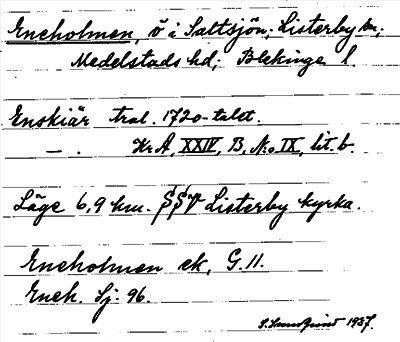 Eneholmen, ö i Saltsjön; Listerby sn;
Medelstads hd; Blekinge l.
Enskiär tral. 1720-talet.
— . Kr A, XXIV, B, No IX, lit. b.
Läge 6,9 km. SSV Listerby kyrka.
Eneholmen ek, G. 11.
Eneh. Sj. 96.
1937.